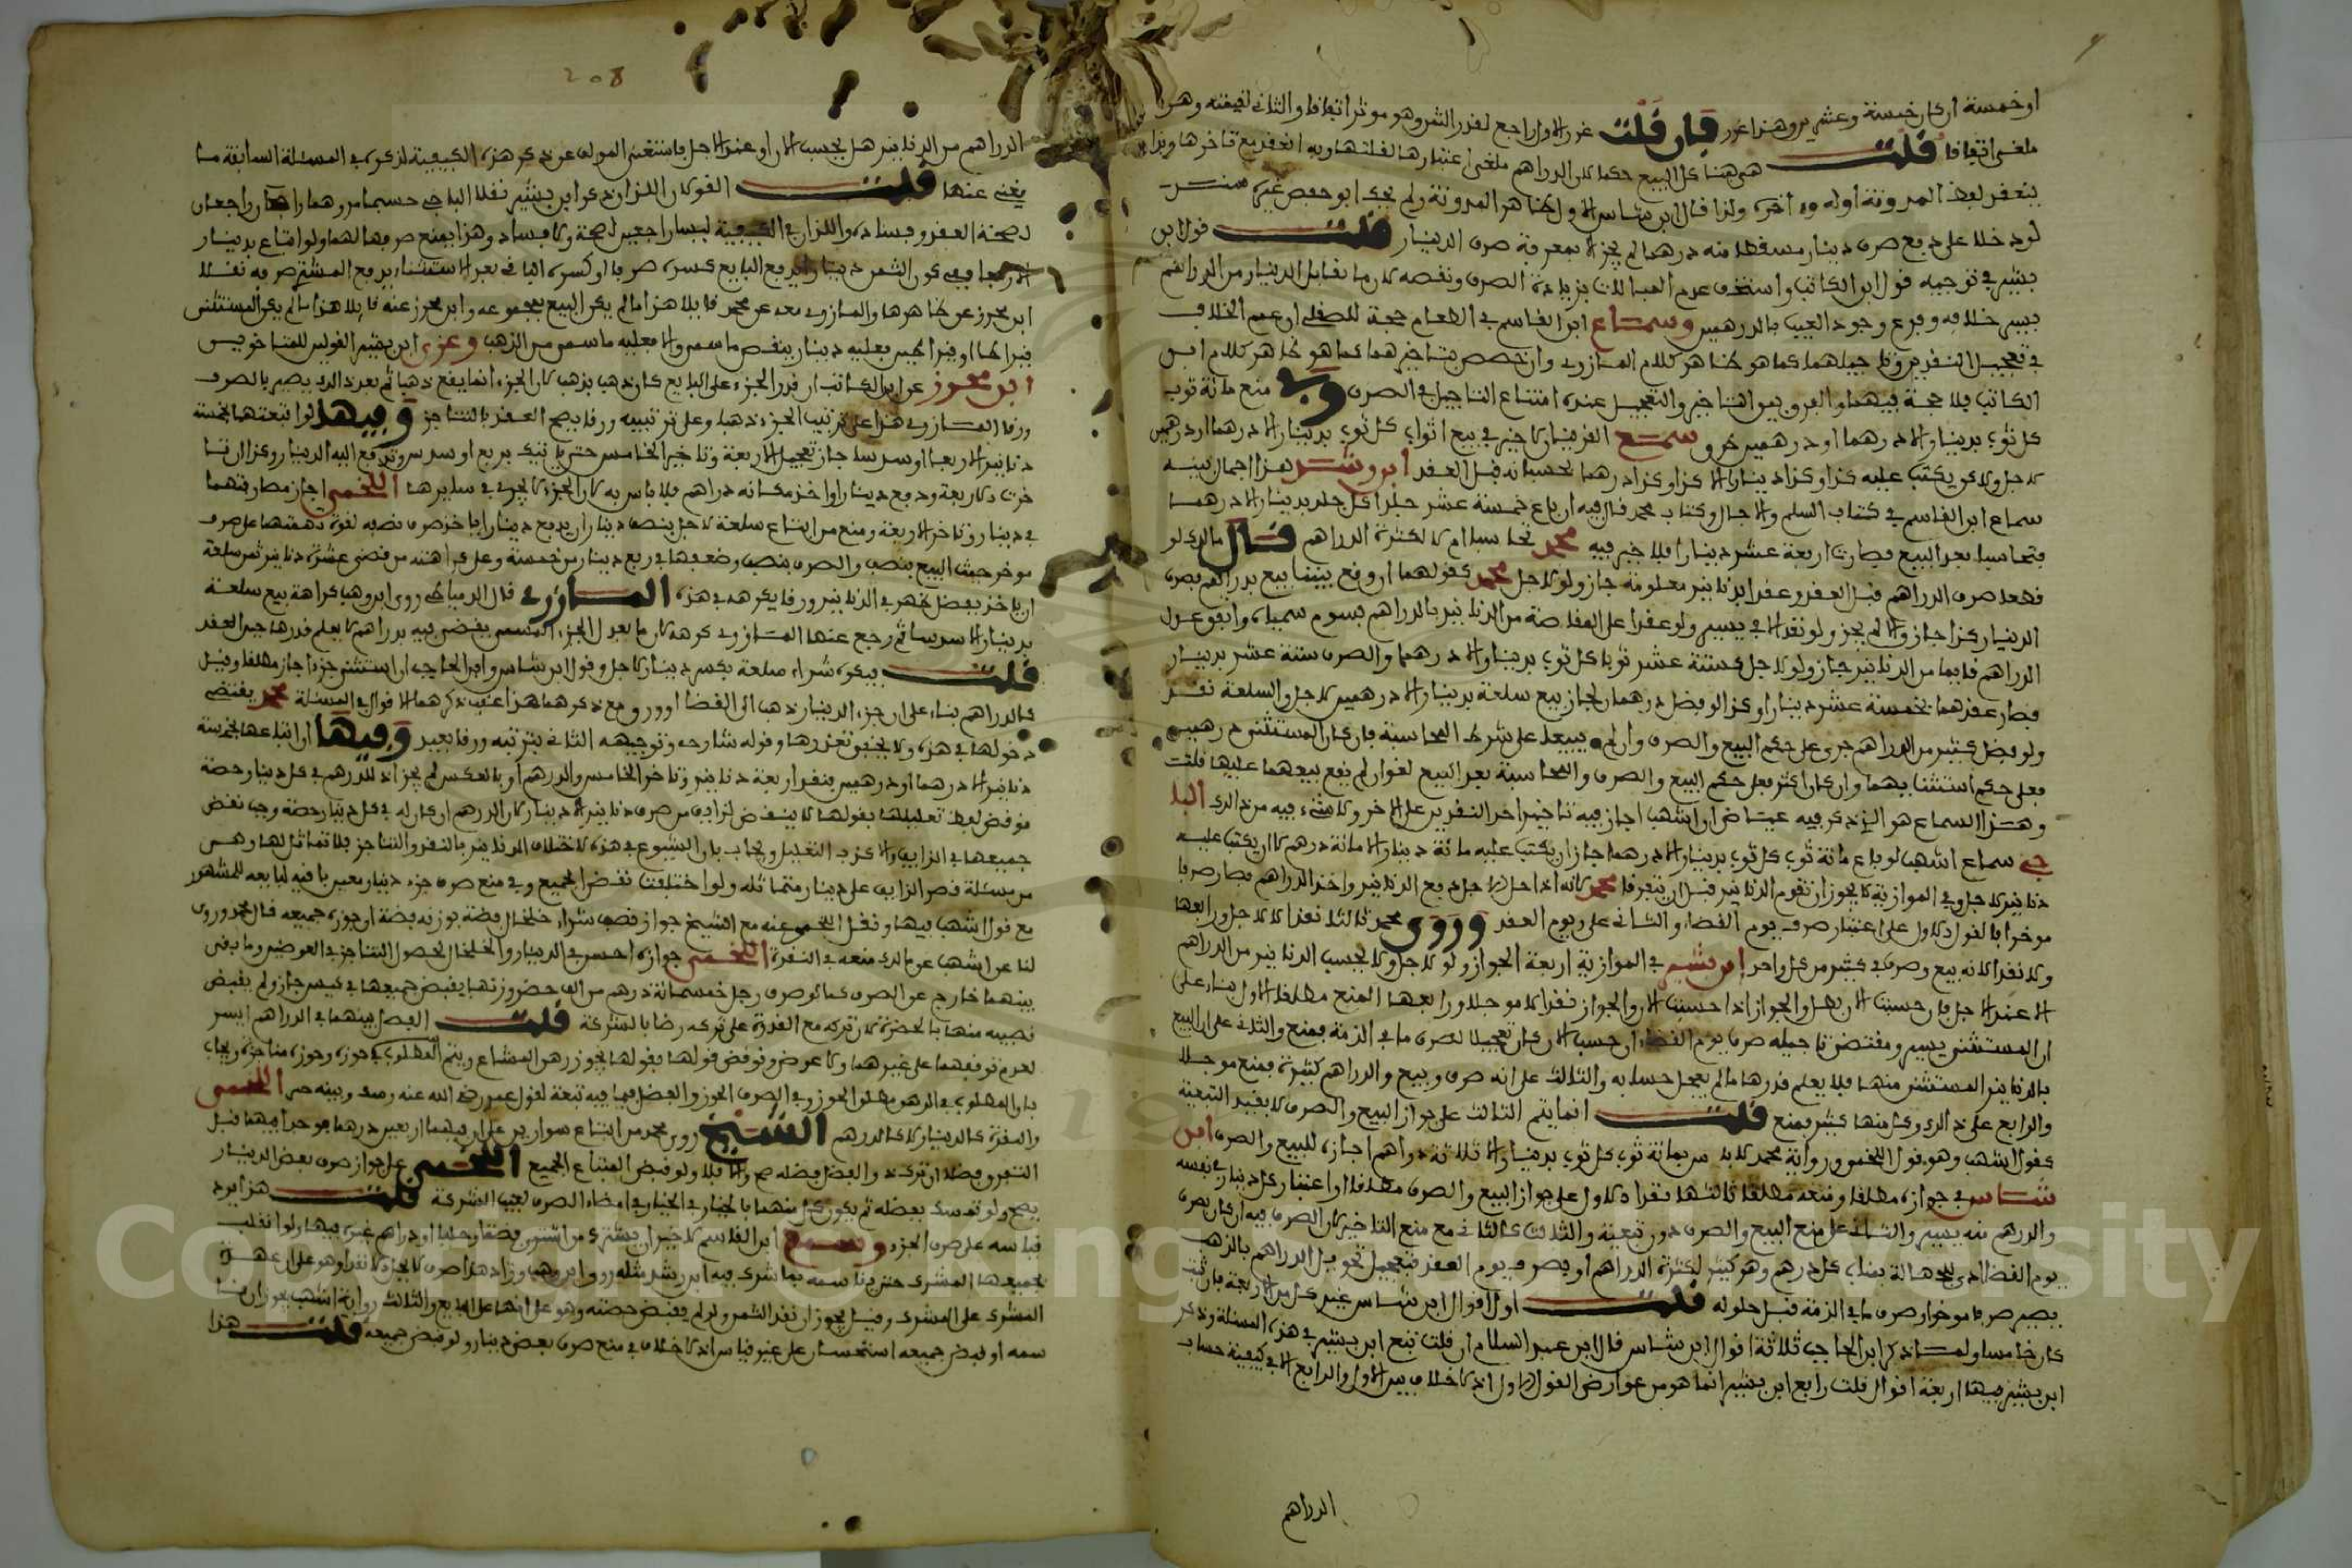 او خمسة ان كان خمسة وعشرين وهذا غرر فان قلت غرر الاول راجع لقدر الثمن وهو موثر اتفاقا والثاني لقيمته وهو
ملغى اتفاقا قلت هي هنا كل المبيع حكما لان الدراهم ملغى اعتبارها لقلتها وبه انعقد مع تاخرها
ينعقد لفظ المدونة اوله وءاخره ولذا قال ابن شاس الاول ظاهر المدونة ولم يحك ابو حفص غيره
لو دخلا على دفع صرف دينار مسقطا منه درهما لم يجز الا بمعرفة صرف الدينار قلت قول ابن
بشير في توجيه قول ابن الكاتب واستخف عدم المبالات بزيادة الصرف ونقصه لان ما يقابل الدينار من الدراهم
يسير خلافه وفرع وجود العيب بالدرهمين وسماع ابن القاسم في الطعام حجة للصقلي ان عمم الخلاف
في تعجيل النقدين وتاجيلهما كما هو ظاهر كلام المازري وان خصص بتاخيرهما كما هو ظاهر كلام ابن
الكاتب فلا حجة فيهما والفرق بين التاخير والتعجيل عنده امتناع التاجيل في الصرف وفي منع مائة ثوب
كل ثوب بدينار الا درهما او درهمين سمع القرينان لا خير في بيع اثواب كل ثوب بدينار الا درهما او درهمين
لاجل ولاكن يكتب عليه كذا وكذا دينارا الا كذا وكذا درهما تحسبانه قبل العقد ابن رشد هذا اجمال بينه
سماع ابن القاسم في كتاب السلم والاجال وكتاب محمد قال فيه ان باع خمسة عشر جلدا كل جلد بدينار الا درهما
فتحاسبا بعد البيع فصارت اربعة عشر دينارا فلا خير فيه محمد لكثرة الدراهم قال مالك لو
قطعا صرف الدراهم قبل العقد وعقدا بدنانير معلومة جاز ولو لاجل محمد كقولهما ان وقع بيننا بيع بدراهم فصرف
الدينار كذا جاز والا لم يجز ولو نقدا الا في يسير ولو عقدا على المقاصة من الدنانير بالدراهم بسوم سمياه واتفق عدول
الدراهم قايما من الدنانير جاز ولو لاجل كستة عشر ثوبا كل ثوب بدينار الا درهما والصرف ستة عشر بدينار
فصار عقدهما بخمسة عشر دينارا وكذا لو فضل درهمان لجاز بيع سلعة بدينار الا درهمين لاجل والسلعة نقد
ولو فضل كثير من الدراهم جرى على حكم البيع والصرف وان لم يبيعا على شرط المحاسبة فان كان المستثنى درهمين
فعلى حكم استثنايهما وان كان اكثر فعلى حكم البيع والصرف والمحاسبة بعد البيع لغو ان لم يقع بيعهما عليها قلت
وهذا السماع هو الذي ذكر فيه عياض ان اشهب اجاز فيه تاخير احد النقدين على الاخر ولا شيء فيه من ذلك البا
جي سماع اشهب لو باع مائة ثوب كل ثوب بدينار الا درهما جاز ان يكتب عليه مائة دينار الا مائة درهم لا ان يكتب عليه
دنانير لاجل وفي الموازية لا يجوز ان تقوم الدنانير قبل ان يتفرقا محمد لانه اذا حل الاجل دفع الدنانير واخذ الدراهم فصار صرفا
موخرا بالقول الاول على اعتبار صرف يوم القضاء والثاني على يوم العقد وروى محمد ثالثا نقدا لا لاجل ورابعها
ولا نقدا لانه بيع وصرف في كثير من كل واحد ابن بشير في الموازية اربعة الجواز ولو لاجل ولا يحسب الدنانير من الدراهم
الا عند الاجل فان حسبت الان بطل والجواز اذا حسبت الان والجواز نقدا لا موجلا ورابعها المنع مطلقا الاول بناء على
ان المستثنى يسير ومقتضى تاجيله صرف يوم القضاء ان حسب الان كان تعجيلا لصرف ما في الذمة فمنع والثاني على ان البيع
بالدنانير المستثنى منها فلا يعلم قدرها ما لم يعجل حسابه والثالث على انه صرف وبيع والدراهم كثيرة فمنع موجلا
والرابع على ذلك وكل منها كثير فمنع قلت انما يتم الثالث على جواز البيع والصرف لا بقيد التبعية
كقول اشهب وهو قول اللخمي ورواية محمد لا باس بمائة ثوب كل ثوب بدينار الا ثلاثة دراهم اجازه للبيع والصرف ابن
شاس في جوازه مطلقا ومنعه مطلقا ثالثها نقدا الاول على جواز البيع والصرف مطلقا او اعتبار كل دينار في نفسه
والدرهم منه يسير والثاني على منع البيع والصرف دون تبعية والثالث كالثاني مع منع التاخير لان الصرف فيه ان كان بصرف
يوم القضاء ادى للجهالة بمناب كل درهم وهو كثير لكثرة الدراهم او بصرف يوم العقد فتعجيل تحويل الدراهم بالذهب
يصير صرفا موخرا وصرف ما في الذمة قبل حلوله قلت اول اقوال ابن شاس غير كل من الاربعة فان ثبت
كان خامسا ولما ذكر ابن الحاجب ثلاثة اقوال ابن شاس قال ابن عبد السلام ان قلت تبع ابن بشير في هذه المسئلة وذكر
ابن بشير فيها اربعة اقوال قلت رابع ابن بشير انما هو من عوارض القول الاول اذ لا خلاف بين الاول والرابع الا في كيفية حساب
الدراهم
208
الدراهم من الدنانير هل يحسب الان او عند الاجل فاستغنى المولف عن ذكر هذه الكيفية لذكره في المسئلة السابقة ما
يغني عنها قلت القولان اللذان ذكر ابن بشير نقلا الباجي حسبما مر وهما راجعان
لصحة العقد وفساده واللذان في الكيفية ليسا راجعين لصحة ولا فساد وهذا يمنع صرفها لهما ولو ابتاع بدينار
الا ربعا ففي كون الثمن دينارا يدفع البايع كسره صرفا او كسره الباقي بعد الاستثناء يدفع المشتري صرفه نقلا
ابن محرز عن ظاهرها والمازري معه عن محمد قايلا هذا ما لم يكن البيع بمجموعه وابن محرز عنه قايلا هذا ما لم يكن المستثنى
قيراطا او قيراطين فعليه دينار ينقص ما سمى والا فعليه ما سمى من الذهب وعزى ابن بشير القولين للمتاخرين
ابن محرز عن ابن الكاتب ان قدر الجزء على البايع كان ذهب بذهب لان الجزء انما يقع ذهبا ثم بعد ذلك يصير بالصرف
ورقا المازري هذا على ترتيب الجزء ذهبا وعلى ترتيبه ورقا يصح العقد بالتناجز وفيها لو ابتعتها بخمسة
دنانير الا ربعا او سدسا جاز تعجيل الاربعة وتاخير الخامس حتى ياتيك بربع او سدس وتدفع اليه الدينار وكذا ان تا
خرت الاربعة ودفع دينارا واخذ مكانه دراهم فلا باس به لان الجزء لا يجري في سايرها اللخمي اجاز مصارفتهما
في دينار وتاخر الاربعة ومنع من ابتاع سلعة لاجل بنصف دينار ان يدفع دينارا ياخذ صرف نصفه لقوة تهمتهما على صرف
موخر حيث البيع بنصف والصرف بنصف وضعفها في ربع دينار من خمسة وعلى كراهته من قضى عشرة دنانير ثمن سلعة
ان ياخذ بفضل ظهر في الدنانير ورقا يكره في هذه المازري قال الدمياطي روى ابن وهب كراهة بيع سلعة
بدينار الا سدسا ثم رجع عنها المازري كرهه لان ما يعدل الجزء المسمى يقضى فيه بدراهم لا يعلم قدرها حين العقد
قلت فيكره شراء سلعة بكسر دينار لاجل وقول ابن شاس وابن الحاجب ان استثنى جزءا جاز مطلقا وقيل
كالدراهم بناء على ان جزء الدينار ذهب الى القضا او ورق مع ذكرهما هذا عقب ذكرهما الاقوال في المسئلة محمد يقتضي
دخولها في هذه ولا يخفى تعذرها وقوله شارحه وتوجيهه الثاني بترتبه ورقا بعيد وفيها ان ابتاعها بخمسة
دنانير الا درهما او درهمين بنقد اربعة دنانير وتاخر الخامس والدرهم او بالعكس لم يجز اذ للدرهم في كل دينار حصة
نوقض لفظ تعليلها بقولها لا ينتقض لزايف من صرف دنانير الا دينار لان الدرهم ان كان له في كل دينار حصة وجب نقض
جميعها في الزايف والا كذب التعليل ويجاب بان الشيوع في هذه لاختلاف الدنانير بالنقد والتناجز فلا تماثل لها وهي
من مسئلة قصر الزايف على دينار متماثلة ولو اختلفت نقض الجميع وفي منع صرف جزء دينار معين باقيه لبايعه المشهور
مع قول اشهب فيها ونقل اللخمي عنه مع الشيخ جواز قصب شراء خلخال فضة بوزنه فضة او جزءه جميعه قال محمد وروى
لنا عن اشهب عن مالك منعه في النقرة اللخمي جوازه احسن في الدينار والخلخال لحصول التناجز في العوضين وما بقى
بينهما خارج عن الصرف كما لو صرف رجل خمسمائة درهم من الف حضر وزنها يقبض جميعها في كيس جاز ولم يقبض
نصيبه منها بالحضرة لان تركه مع القدرة على تركه رضا بالشركة قلت الفصل بينهما في الدراهم ايسر
لعدم توقفهما على غيرهما ولا عوض ونوقض قولها بقولها يجوز رهن المشاع ويتم المطلوب في حوزه وحوزه متاخر ويجاب
بان المطلوب في الرهن مطلق الحوز وفي الصرف الحوز والفضل فيما فيه تبعة لقول عمر رضي الله عنه وصف وبينه حين اللخمي
والنقرة كالدينار لا كالدرهم الشيخ روى محمد من ابتاع سوارين على ان فيهما اربعين درهما فوجد فيهما قبل
التفرق فضلا ان تركه والفضل فضله صح والا فلا ولو قبض المبتاع الجميع اللخمي على جواز صرف بعض الدينار
يصح ولو تمسك بفضله ثم يكون كل منهما بالخيار في امضاء الصرف لعيب الشركة قلت هذا يرد
قياسه على صرف الجزء وسمع ابن القاسم لا خير ان يشتري من اشترى فضة او حليا او دراهم غيره فيها ولو انقلب
بجميعها المشرك حتى يقاسمه فيما شرك فيه ابن رشد مثله روى ابن وهب وزاد هذا صرف لا يجوز الا نقدا وهو على ان عهدة
المشرك على المشرك وقيل يجوز ان نقد الثمن ولو لم يقبض حصته وهو على انها على البايع والثالث رواية اشهب يجوز ان قا
سمه او قبض جميعه استحسان على غير قياس اذ لا خلاف في منع صرف بعض دينار ولو قبض جميعه قلت هذا